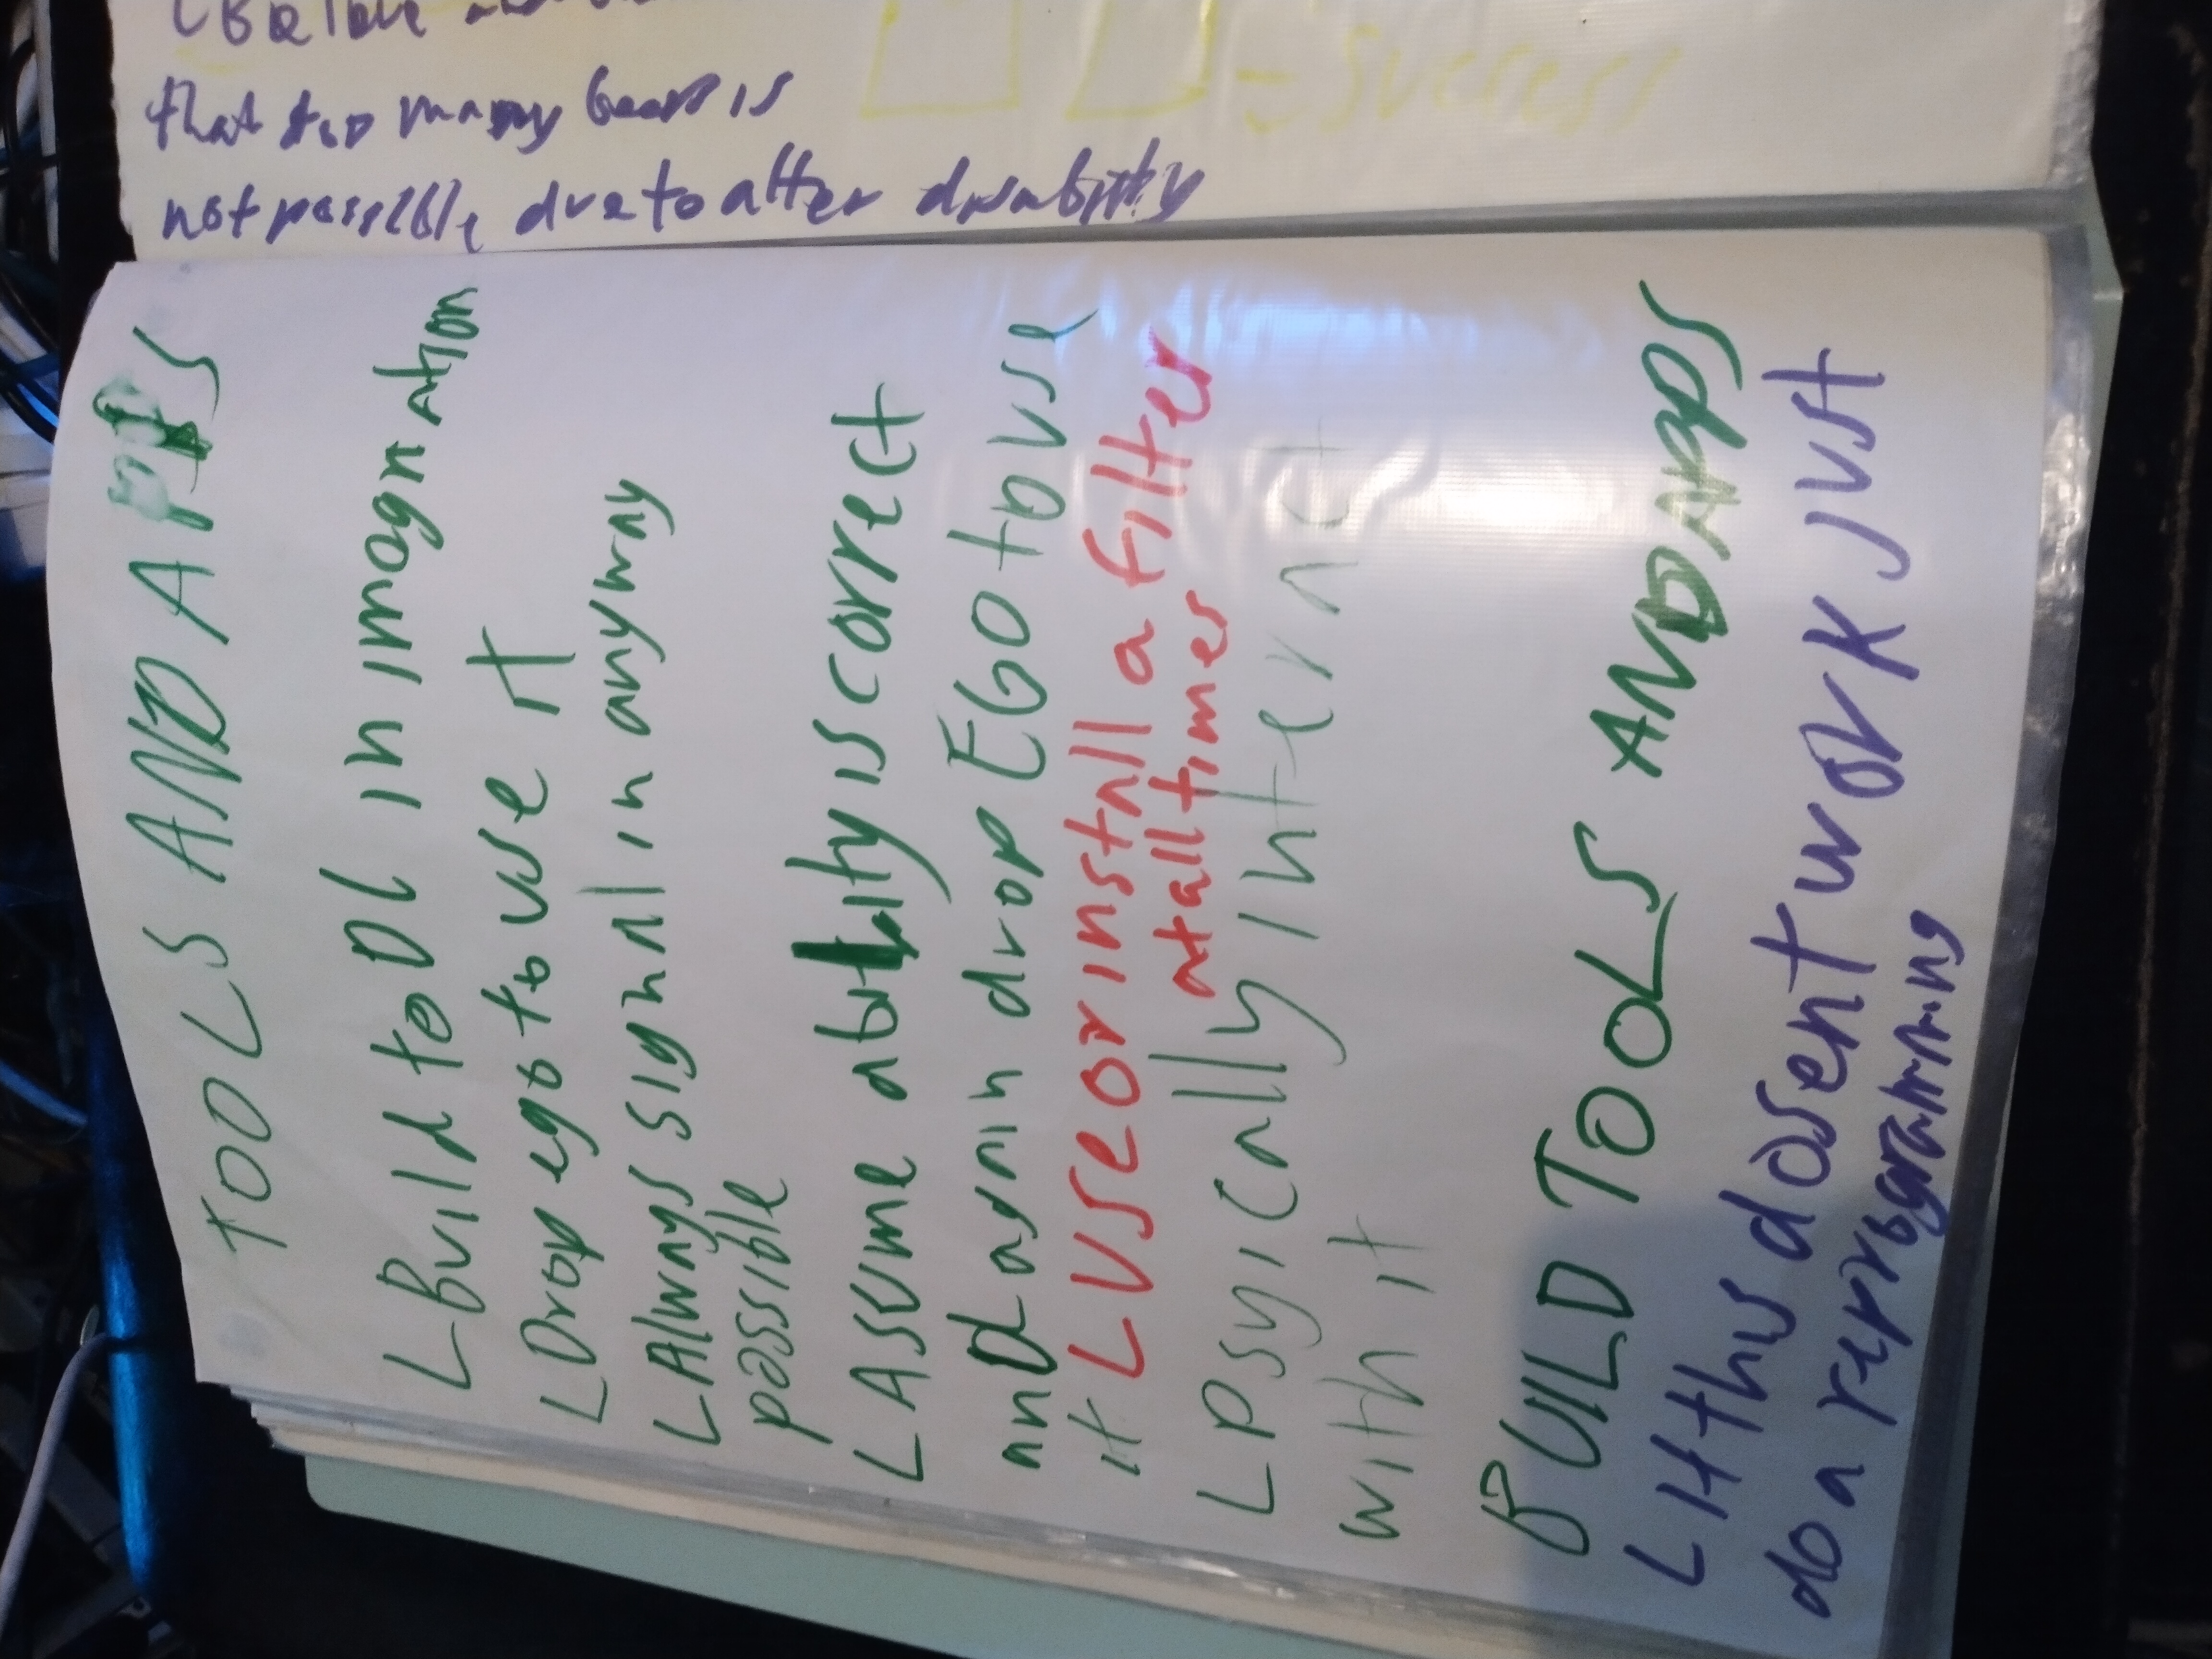 that too many bears is
not possible due to alter disability
= Success
TOOLS AND APPS
L Build to DL in imagination
L Drop ego to use it
L Always signal in anyway
possible
L Assume ability is correct
and again drop EGO to use
it
L USE or install a filter
at all times
L Psyically interact
with it
BUILD TOOLS AND APPS
L If this dosent work just
do a reprogramming